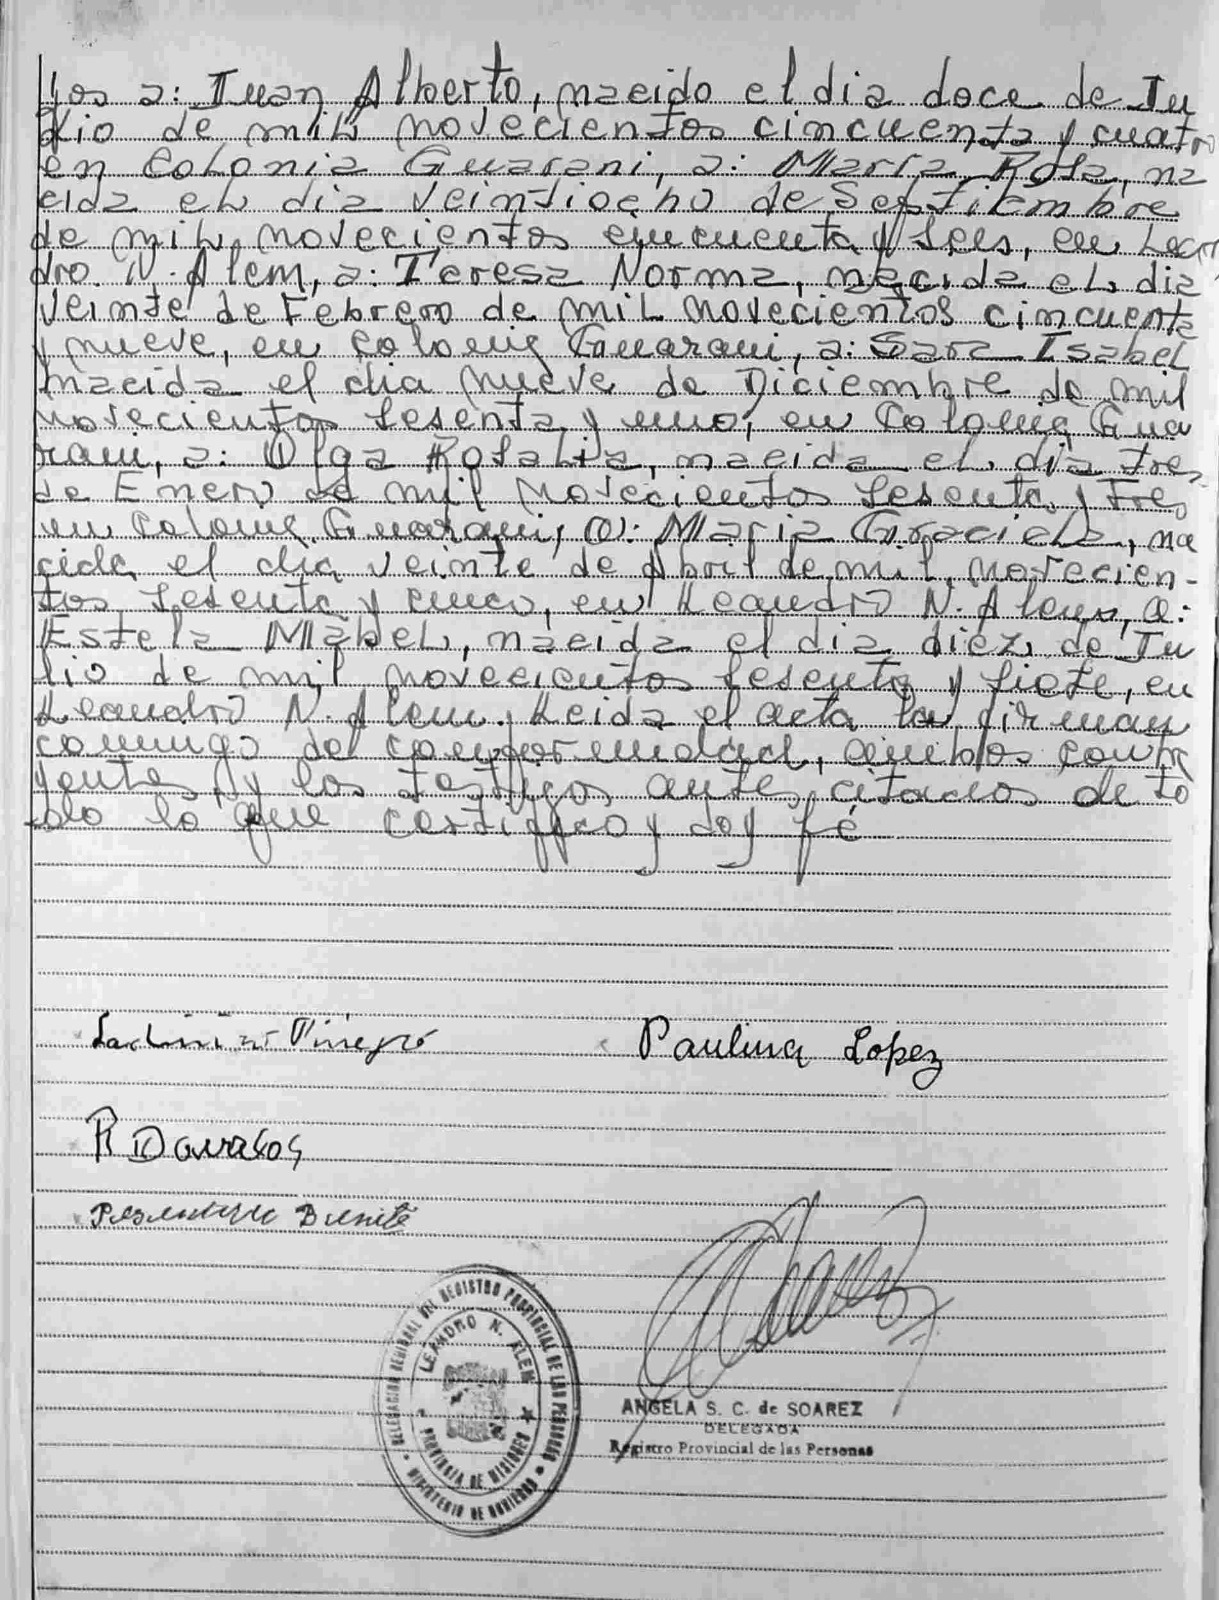 jos a: Juan Alberto, nacido el dia doce de Ju
lio de mil novecientos cincuenta y cuatro
en Colonia Guarani, a: Maria Rosa, na
cida el dia veintiocho de Septiembre
de mil novecientos cincuenta y seis, en Lean
dro. N. Alem, a: Teresa Norma, nacida el dia
veinte de Febrero de mil novecientos cincuenta
y nueve, en Colonia Guarani, a: Sara Isabel
nacida el dia nueve de Diciembre de mil
novecientos sesenta y uno, en Colonia Gua
rani, a: Olga Rosalia, nacida el dia tres
de Enero de mil novecientos sesenta y tres
en Colonia Guarani, a: Maria Graciela, na
cida el dia veinte de Abril de mil novecien-
tos sesenta y cinco, en Leandro N. Alem, a:
Estela Mabel, nacida el dia diez de Ju
lio de mil novecientos sesenta y siete, en
Leandro N. Alem. Leida el acta la firman
conmigo de conformidad, ambos contra
yentes, y los testigos antes citados de to
do lo que certifico y doy fé
Paulina Lopez
R
ANGELA S. C. de SOAREZ
DELEGADA
Registro Provincial de las Personas
DELEGACION REGIONAL DEL REGISTRO PROVINCIAL DE LAS PERSONAS
LEANDRO N. ALEM
PROVINCIA DE MISIONES
MINISTERIO DE GOBIERNO